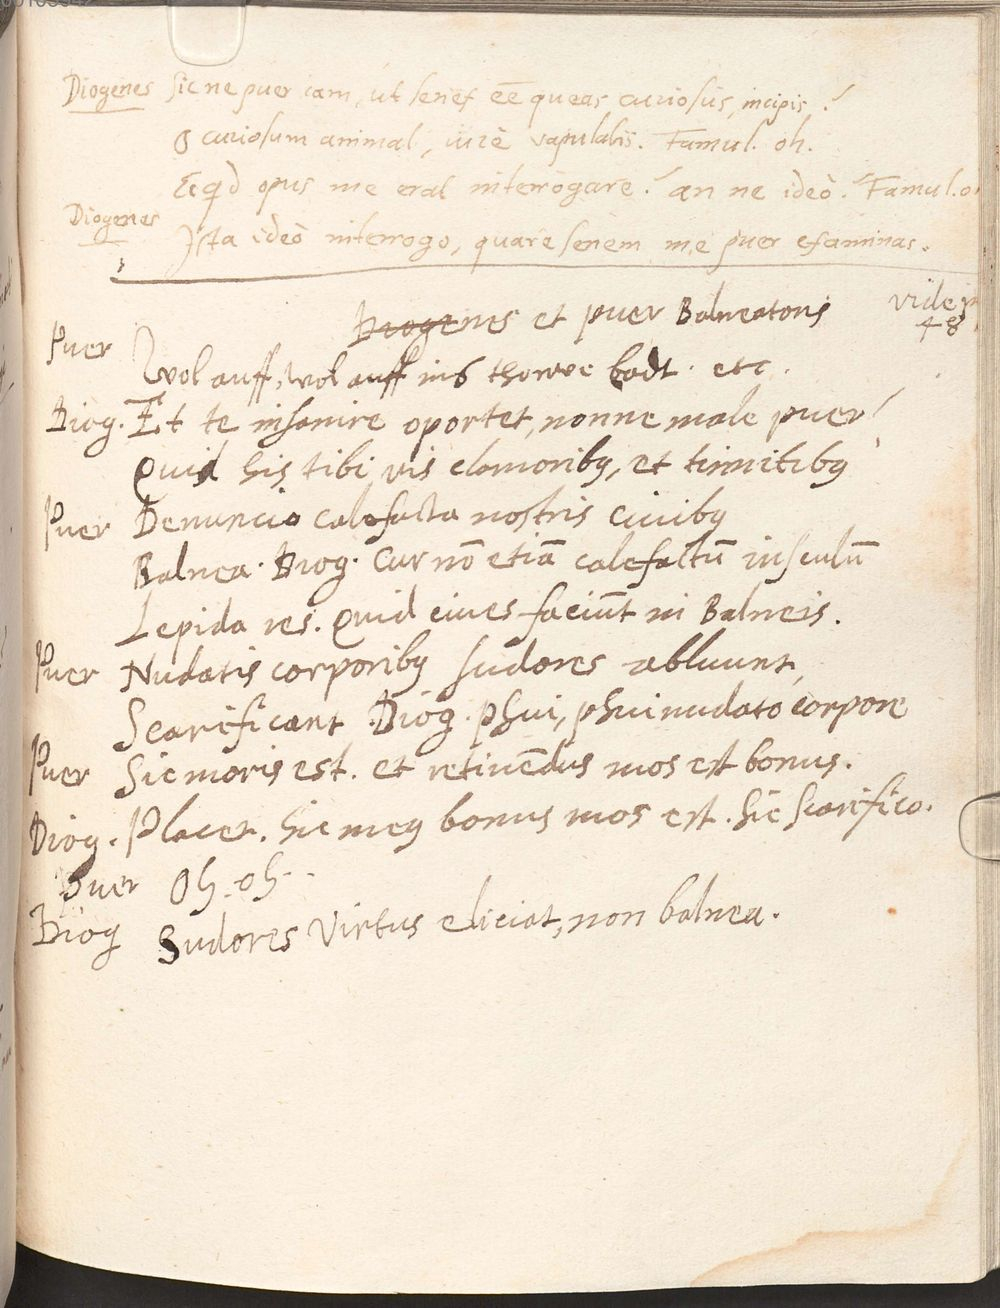 Diogenes Sicne puer iam, ut senex eē queas curiosus, incipis?
O curiosum animal, iurè vapulabis. Famul. oh.
Ecqd opus me erat interrogare? an ne ideò? Famul. o
Diogenes Ista ideò interrogo, quare senem me puer examinas.
Diogenes et puer Balneatoris
vide
48
Puer Wol auff, wol auff ins badt. etc.
Diog. Et te insanire oportet, nonne male puer?
Quid his tibi vis clamoribq, et tinnitibq
Puer Denuncio calefacta nostris ciuibq
Balnea. Diog. Cur nō etiā calefactū
Lepida res. Quid ciues faciūt in Balneis.
Puer Nudatis corporibq sudores abluunt,
Scarificant. Diog. phui, phui nudato corpore
Puer Sic moris est. et retinēdus mos est bonus.
Diog. Placet. hic meq bonus mos est. Sic scarifico.
Puer Oh. oh. . .
Diog Sudores Virtus eliciat, non balnea.